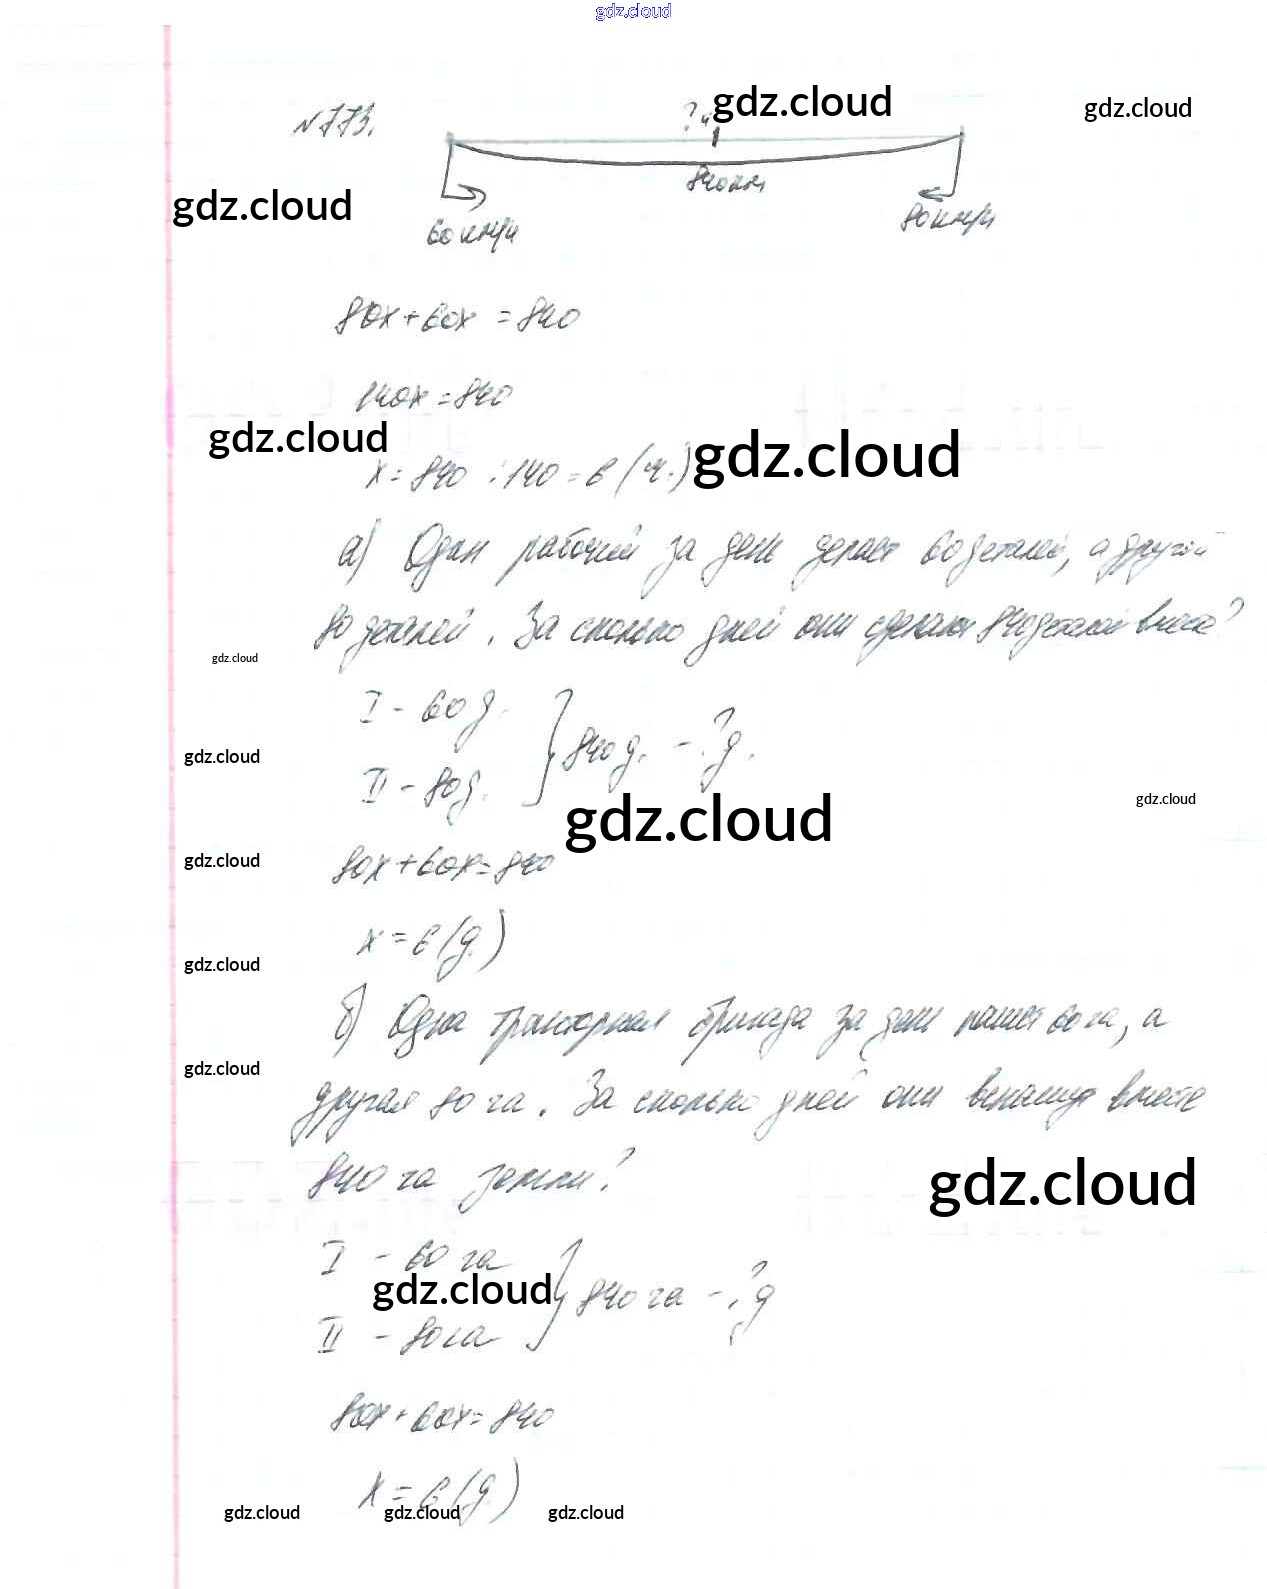 gdz.cloud
№773.
? ч
gdz.cloud
gdz.cloud
840 км
gdz.cloud
60 км/ч
80 км/ч
80x + 60x = 840
140x = 840
gdz.cloud
gdz.cloud
x = 840 : 140 = 6 (ч.)
а) Один рабочий за день делает 60 деталей, а другой
80 деталей. За сколько дней они сделают 840 деталей вместе?
gdz.cloud
I - 60 д.
gdz.cloud
840 д. - ? д.
II - 80 д.
gdz.cloud
gdz.cloud
gdz.cloud
80x + 60x = 840
x = 6 (д.)
gdz.cloud
б) Одна тракторная бригада за день пашет 60 га, а
gdz.cloud
другая 80 га. За сколько дней они вспашут вместе
840 га земли?
gdz.cloud
I - 60 га
gdz.cloud
840 га - ? д
II - 80 га
80x + 60x = 840
x = 6 (д.)
gdz.cloud gdz.cloud gdz.cloud